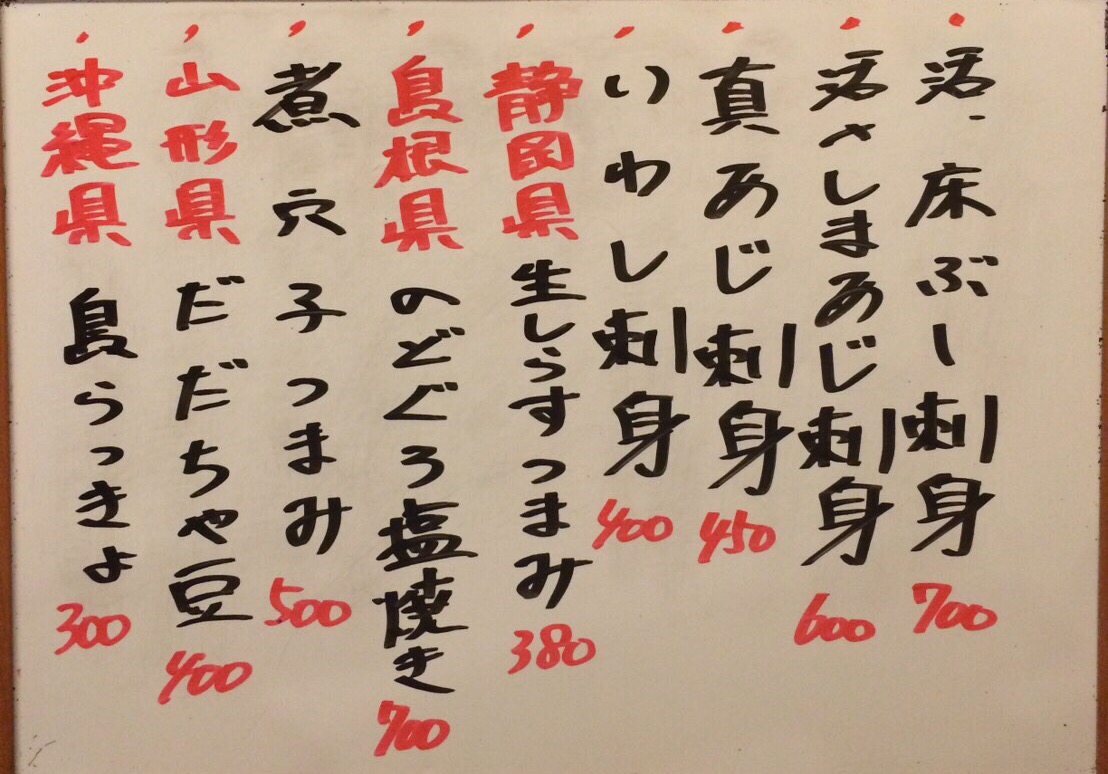 ・活・床ぶし刺身 700
・活〃しまあじ刺身 600
・真あじ刺身 450
・いわし刺身 400
・静岡県 生しらすつまみ 380
・島根県 のどぐろ塩焼き 700
・煮穴子つまみ 500
・山形県 だだちゃ豆 400
・沖縄県 島らっきょ 300